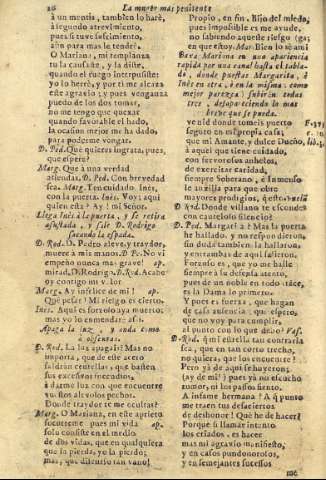 20
La muger mas penitente
à un mentis, tambien lo harè,
à segundo atrevimiento,
pues si tuve sufrimiento,
aun para mas le tendrè.
O Mariana, mi templança
tu la causaste, y la diste,
quando el fuego interpusiste:
yo lo herrè, y por ti me alcanza
este agravio; y pues vengança
puedo de los dos tomar,
no me tengo que quexar
quando favorable el hado,
la ocasion mejor me ha dado,
para poderme vengar.
D. Ped. Què quieres ingrata, pues,
que espero?
Marg. Que à una verdad
atiendas. D. Ped. Con brevedad
sea. Marg. Ten cuidado, Inès,
con la puerta. Inès. Voy; aqui
quien està? Ay! mi Señor.
Llega Inès à la puerta, y se retira
assustada, y sale D. Rodrigo
sacando la espada.
D. Rod. D. Pedro aleve, y traydor,
muere à mis manos. D. Pe. No vi
empeño nunca mas grave! ap.
mirad, D. Rodrig. D. Rod. Acabo
oy contigo mi valor.
Marg. Ay infelice de mi! ap.
Què pesar! Mi riesgo es cierto.
Inès. Aqui es forçoso ya muerte;
mas yo lo enmendarè assi.
Apaga la luz, y anda como
à obscuras.
D. Rod. La luz apagais? Mas no
importa, que de este acero
saldràn centellas, que basten
sus excessos encendidos,
à darme luz con que encuentre
vuestros alevosos pechos.
Donde traydor te me ocultas?
Marg. O Mariana, en este aprieto
socorreme pues mi vida ap.
solo consiste en el medio
de dos vidas, que en qualquiera
que la pierda, yo la pierdo;
mas, què discurso tan vano!
Propio, en fin, Hijo del miedo,
pues impossible es me ayude,
no sabiendo aqueste riesgo (ga;
en que estoy. Mar. Bien lo sè ami
Baxa Mariana en una apariencia
rapida por una canal hasta el tabla-
do, donde puestas Margarita, è
Inès en otra, ò en la misma, como
mejor parezca, subiràn todas
tres, desapareciendo lo mas
breve que se pueda.
ven id donde tomeis puerto
seguro en mi propia casa;
que mi Amante, y dulce Dueño,
à aquel que tiene cuidado,
con fervorosos anhelos,
de exercitar caridad,
siempre Soberano, è Inmenso
le auxilia para que obre
mayores prodigios, que estos. vuela
D. Rod. Donde villano te escondes
con cauteloso silencio?
D. Ped. Margarita? Mas la puerta
he hallado, y no respondieron,
sin duda tambien la hallaron,
y entrambas de aqui salieron.
Forando es, que yo me halle
siempre à su defensa atento,
pues de un noble en todo trace,
es la Dama lo primero:
Y pues es fuerza, que hagan
de casa ausencia: què espero,
que no voy para cumplir,
al punto con lo que debo? Vas.
D. Rod. què mi estrella tan contraria
sea, que en tan corto trecho,
no quiera, que los encuentre!
Pero yà de aqui se huyeron;
(ay de mi!) pues yà no escucho
rumor, ni los passos siento.
A infame hermana! A què punto
me traen tus desaciertos
de deshonor! Què he de hacer?
Porque si llamar intento
los criados, es hacer
mas mi agravio manifiesto,
y en casos pundonorosos,
y en semejantes sucessos